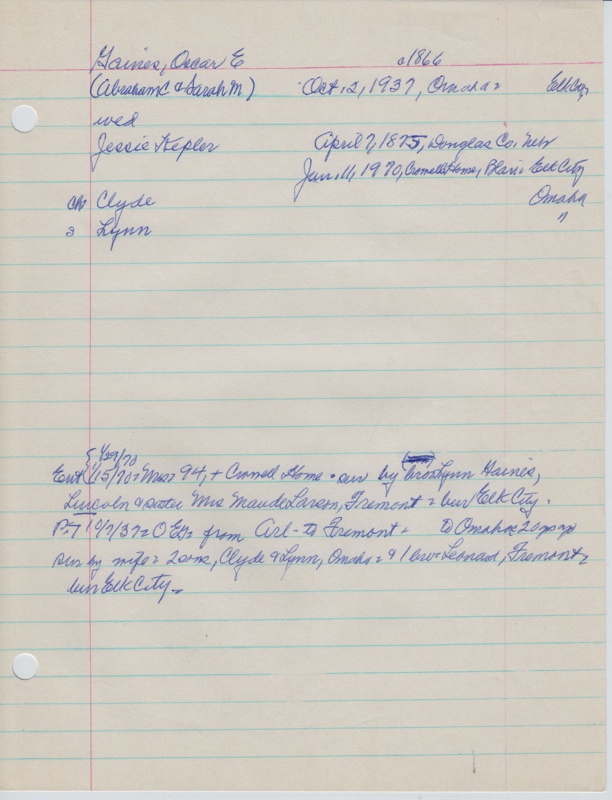 Gaines, Oscar E c1866
(Abraham C & Sarah M.) Oct. 12, 1937, Omaha = Elk City
wed
Jessie Kepler April 7, 1875, Douglas Co. Neb
Jan. 11, 1970, Crowell Home, Blair = Elk City
ch Clyde Omaha
s Lynn
{ 1/29/70
Ent 1/15/70 = Mrs = 94, + Crowell Home = sur by bro = Lynn Haines,
Lincoln & sister Mrs Maude Larson, Fremont = bur Elk City.
P-T 10/7/37 = O E G = from Arl - to Fremont = to Omaha = 20 yrs ago
sur by wife = 2 sons, Clyde & Lynn, Omaha = & 1 bro = Leonard, Fremont =
bur Elk City =